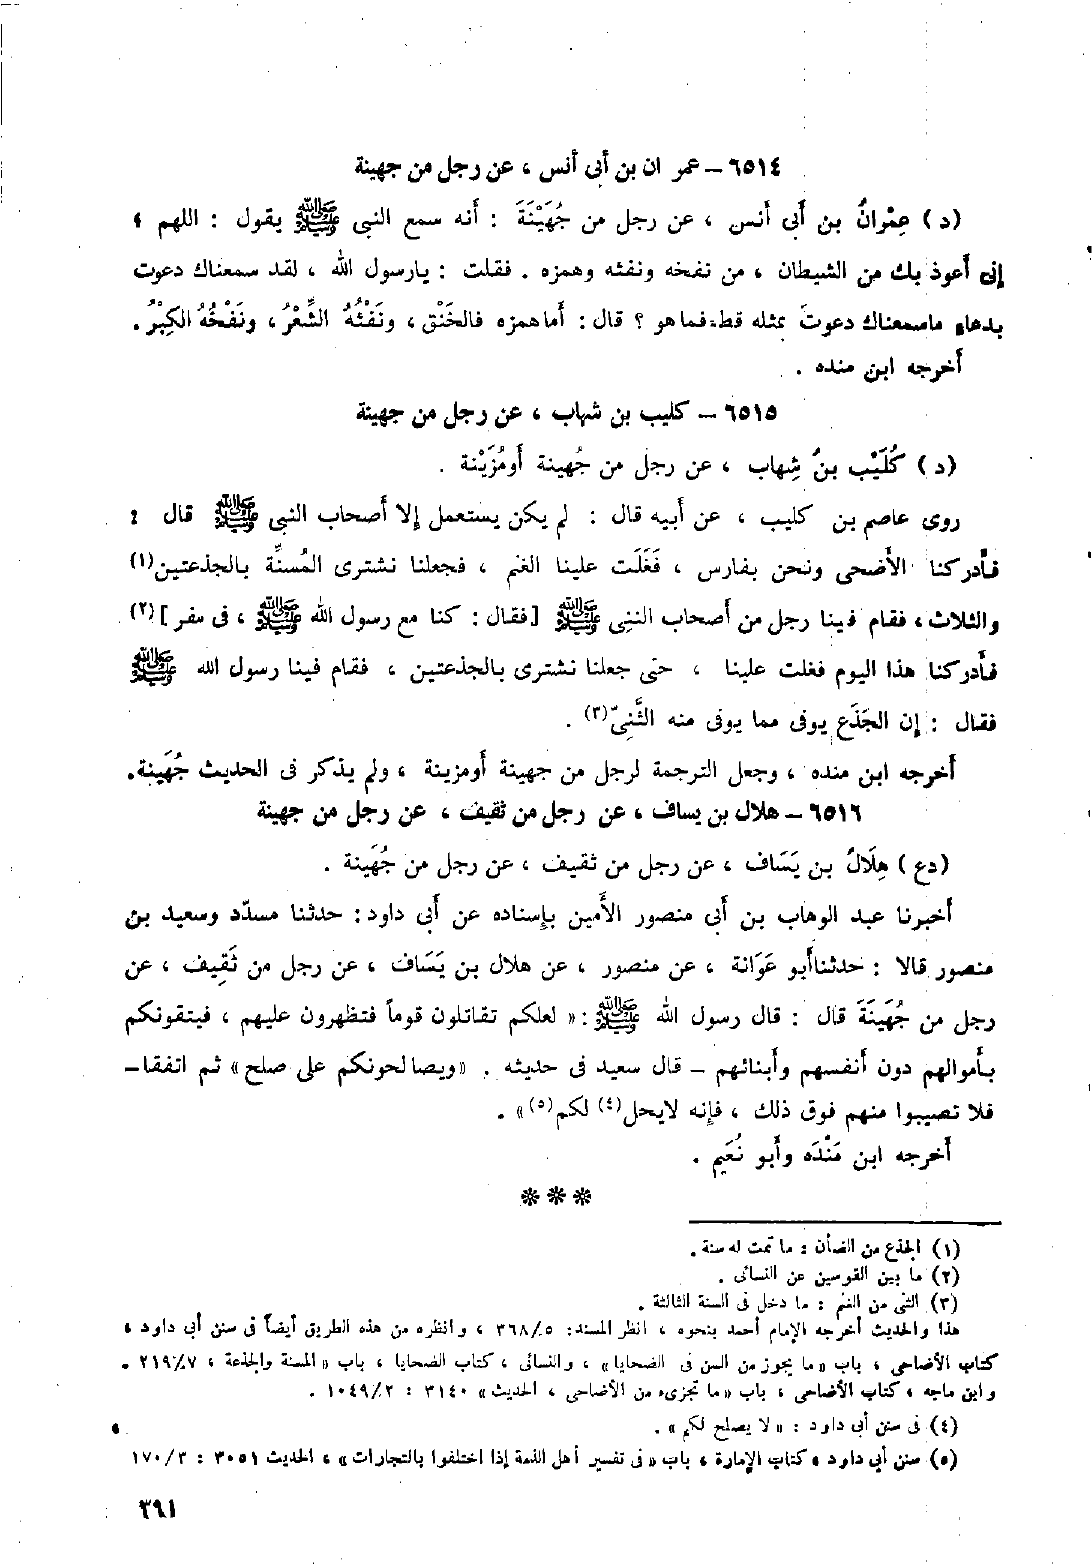 ٦٥١٤ – عمر ان بن أبى أنس ، عن رجل من جهينة
(د) عِمْرانُ بن أَبى أَنس ، عن رجل من جُهَيْنَةَ : أَنه سمع النبى ﷺ يقول : اللهم ،
إنى أَعوذ بك من الشيطان ، من نفخه ونفثه وهمزه . فقلت : يارسول الله ، لقد سمعناك دعوت
بدعاء ماسمعناك دعوتَ بمثله قط، فما هو ؟ قال : أَما همزه فالخَنْق ، ونَفْثُهُ الشِّعْرُ ، ونَفْخُهُ الكِبْرُ .
أَخرجه ابن منده .
٦٥١٥ – كليب بن شهاب ، عن رجل من جهينة
(د) كُلَيْب بنُ شِهاب ، عن رجل من جُهينة أَومُزَيْنة .
روى عاصم بن كليب ، عن أَبيه قال : لم يكن يستعمل إلا أَصحاب النبى ﷺ قال :
فأَدركنا الأَضحى ونحن بفارس ، فَغَلَت علينا الغنم ، فجعلنا نشترى المُسنَّة بالجذعتين(١)
والثلاث ، فقام فينا رجل من أَصحاب النبى ﷺ [فقال : كنا مع رسول الله ﷺ ، فى سفر ](٢)
فأَدركنا هذا اليوم فغلت علينا ، حتى جعلنا نشترى بالجذعتين ، فقام فينا رسول الله ﷺ
فقال : إن الجَذَع يوفى مما يوفى منه الثَّنِىّ(٣) .
أَخرجه ابن منده ، وجعل الترجمة لرجل من جهينة أَومزينة ، ولم يذكر فى الحديث جُهَينة.
٦٥١٦ – هلال بن يساف ، عن رجل من ثقيف ، عن رجل من جهينة
(دع) هِلَالُ بن يَسَاف ، عن رجل من ثقيف ، عن رجل من جُهَينة .
أَخبرنا عبد الوهاب بن أَبى منصور الأَمين بإسناده عن أَبى داود : حدثنا مسدّد وسعيد بن
منصور قالا : حدثنا أَبو عَوَانة ، عن منصور ، عن هلال بن يَسَاف ، عن رجل من ثَقِيف ، عن
رجل من جُهَينَةَ قال : قال رسول الله ﷺ : « لعلكم تقاتلون قوماً فتظهرون عليهم ، فيتقونكم
بأَموالهم دون أَنفسهم وأَبنائهم – قال سعيد فى حديثه . «ويصالحونكم على صلح» ثم اتفقا–
فلا تصيبوا منهم فوق ذلك ، فإنه لايحل(٤) لكم(٥)» .
أَخرجه ابن مَنْدَه وأَبو نُعَيم .
***
(١) الجذع من الضأن : ما تمت له سنة .
(٢) ما بين القوسين عن النسائى .
(٣) الثنى من الغنم : ما دخل فى السنة الثالثة .
هذا والحديث أخرجه الإمام أحمد بنحوه ، انظر المسند: ٣٦٨/٥ ، وانظره من هذه الطريق أيضاً فى سنن أبى داود ،
كتاب الأضاحى ، باب «ما يجوز من السن فى الضحايا» ، والنسائى ، كتاب الضحايا ، باب «المسنة والجذعة ، ٢١٩/٧ .
وابن ماجه ، كتاب الأضاحى ، باب «ما تجزىء من الأضاحى ، الحديث» ٣١٤٠ : ١٠٤٩/٢ .
(٤) فى سنن أبى داود : «لا يصلح لكم» .
(٥) سنن أبى داود ، كتاب الإمارة ، باب «فى تفسير أهل الذمة إذا اختلفوا بالتجارات» ، الحديث ٣٠٥١ : ١٧٠/٣
٣٩١